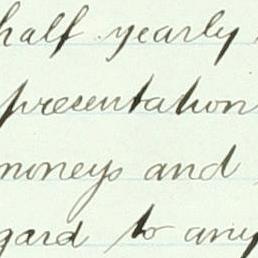 half yearly
presentation
moneys and
gard to any